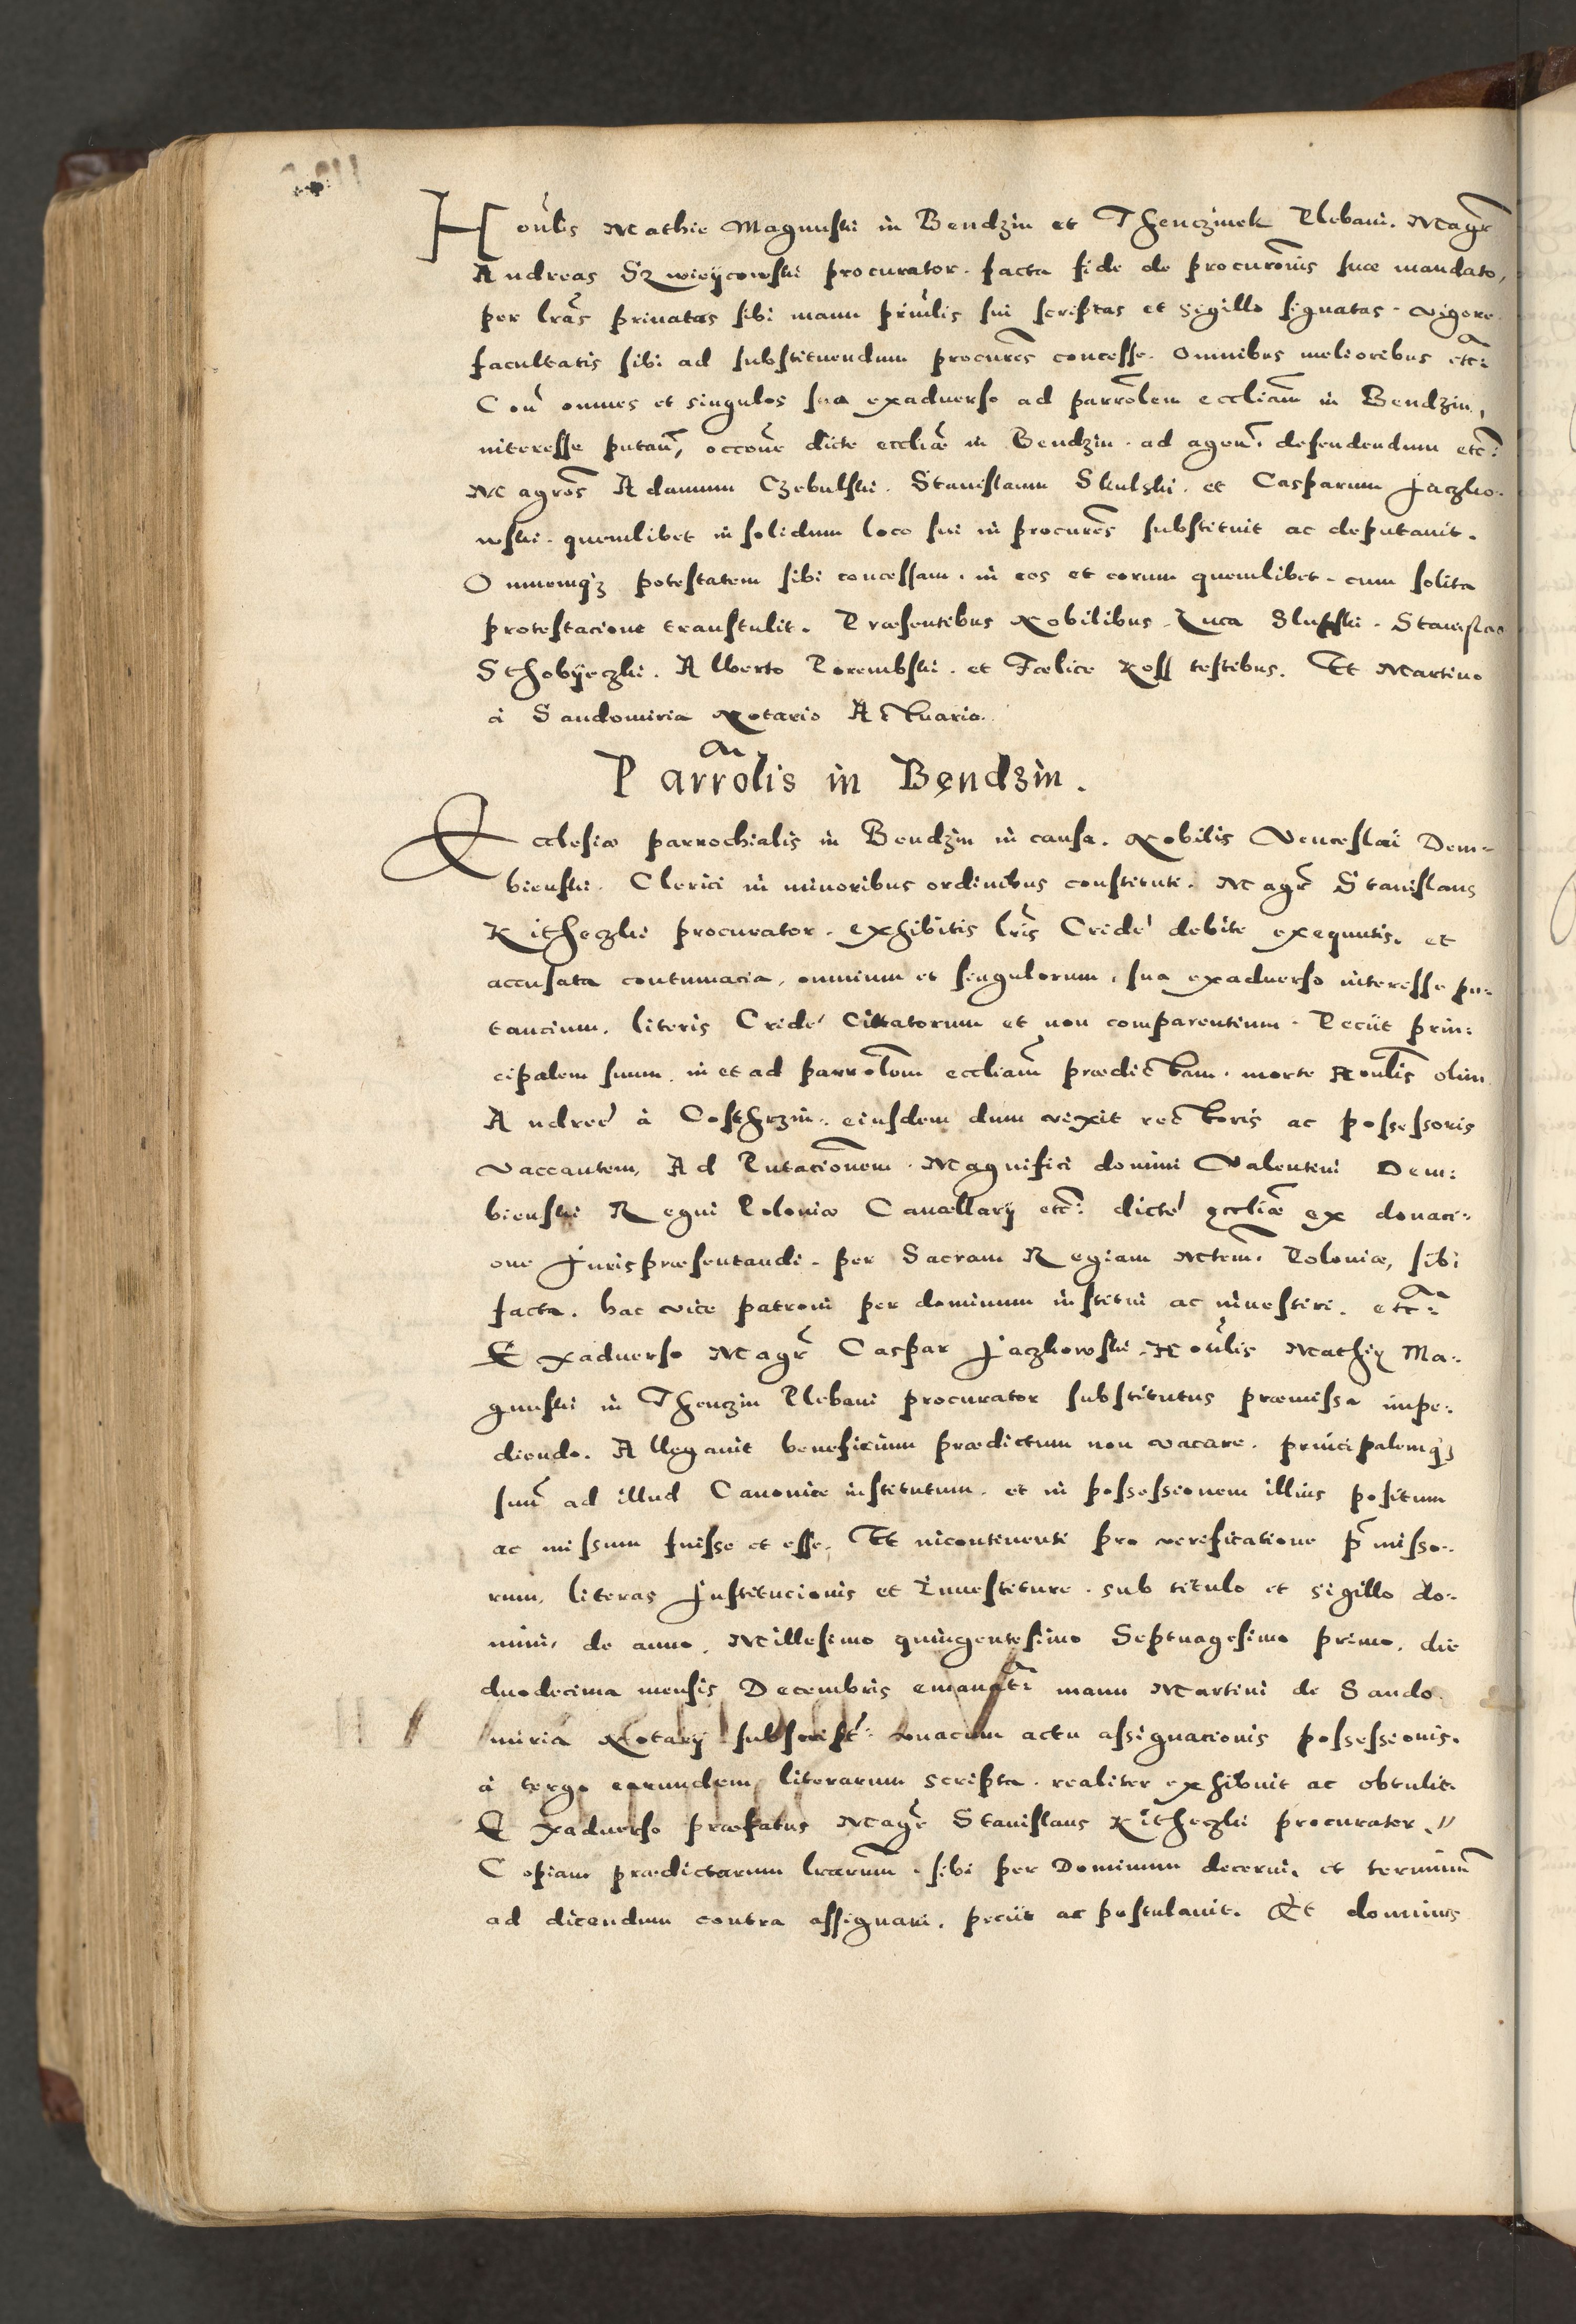 Honlis Mathie Magnuski in Bendzin et Thenczinek Plebani. Magr
Andreas Szwieÿcowski procurator. facta fide de procuronis suæ mandato,
per lras priuatas sibi manu prinlis sui scriptas et sigillo signatas. vigore
facultatis sibi ad substituendum procures concesse. Omnibus melioribus etc:
Con omnes et singulos sua exaduerso ad parrolem eccliam in Bendzin,
interesse putan, occone dicte eccliæ in Bendzin. ad agen. defendendum etc:
Magros Adamum Czebulski. Stanislaum Skulski. et Casparum Jaczko-
wski. quemlibet in solidum loco sui in procures substituit ac deputauit.
Omnemq3 potestatem sibi concessam. in eos et eorum quemlibet. cum solita
protestacione transtulit. Præsentibus Nobilibus. Luca Slupski. Stanislao
Sthobÿeczki. Alberto Porembski. et Fælice Ross testibus. Et Martino
à Sandomiria Notario Actuario.
Parrolis in Bendzin.
Ecclesiæ parrochialis in Bendzin in causa. Nobilis Venceslai Dem-
bienski. Clerici in minoribus ordinibus constituti. Magr Stanislaus
Kitheczki procurator. exhibitis lris Cridę debite exequutis. et
accusata contumacia, omnium et singulorum, sua exaduerso interesse pu-
tancium. literis Cridę cittatorum et non comparentium. Peciit prin:
cipalem suum. in et ad parrolem eccliam prædictam. morte Honlis olim
Andreę à Costhrzin. eiusdem dum vixit rectoris ac possessoris
vaccantem, Ad Putacionem. Magnifici domini Valentini Dem:
bienski Regni Poloniæ Cancellarÿ etc: dictę eccliæ ex donaci-
one Jurispræsentandi. per Sacram Regiam Mtem. Poloniæ, sibi
facta. hac vice patroni per dominum institui ac inuestiri. etc:
Exaduerso Magr Caspar Jaczkowski. Honlis Mathię Ma-
gnuski in Thenczin Plebani procurator substitutus præmissa impe-
diendo. Allegauit beneficium prædictum non vacare. principalemq3
suu ad illud Canonice institutum. et in possessionem illius positum
ac missum fuisse et esse. Et incontinenti pro verificatione pr misso-
rum, literas Institucionis et Inuestiture. sub titulo et sigillo do-
mini, de anno. Millesimo quingentesimo Septuagesimo primo. die
duodecima mensis Decembris emanat: manu Martini de Sando
miria Notarÿ subscript: vnacum actu assignacionis possessionis.
à tergo earundem literarum scripta. realiter exhibuit ac obtulit.
Exaduerso præfatus Magr Stanislaus Kitheczki procurator.
Copiam prædictarum lrarum. sibi per Dominum decerni. et terminu
ad dicendum contra assignari. peciit ac postulauit. Et dominus